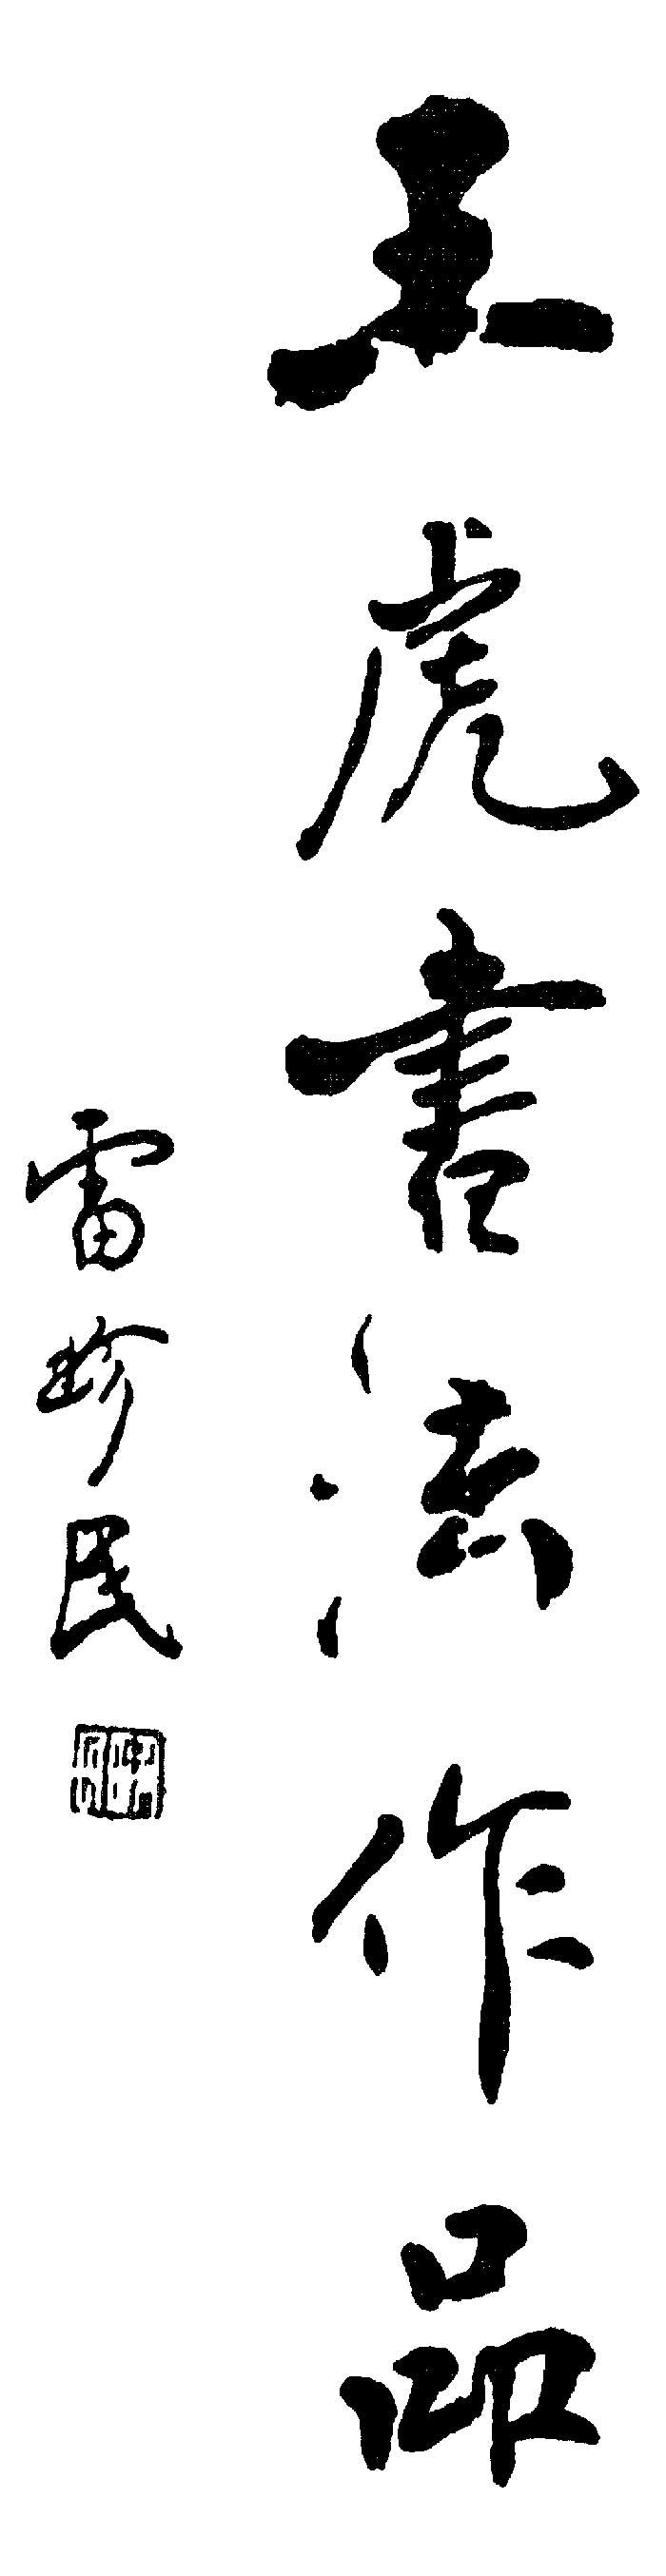 王虎書法作品
雷珍民